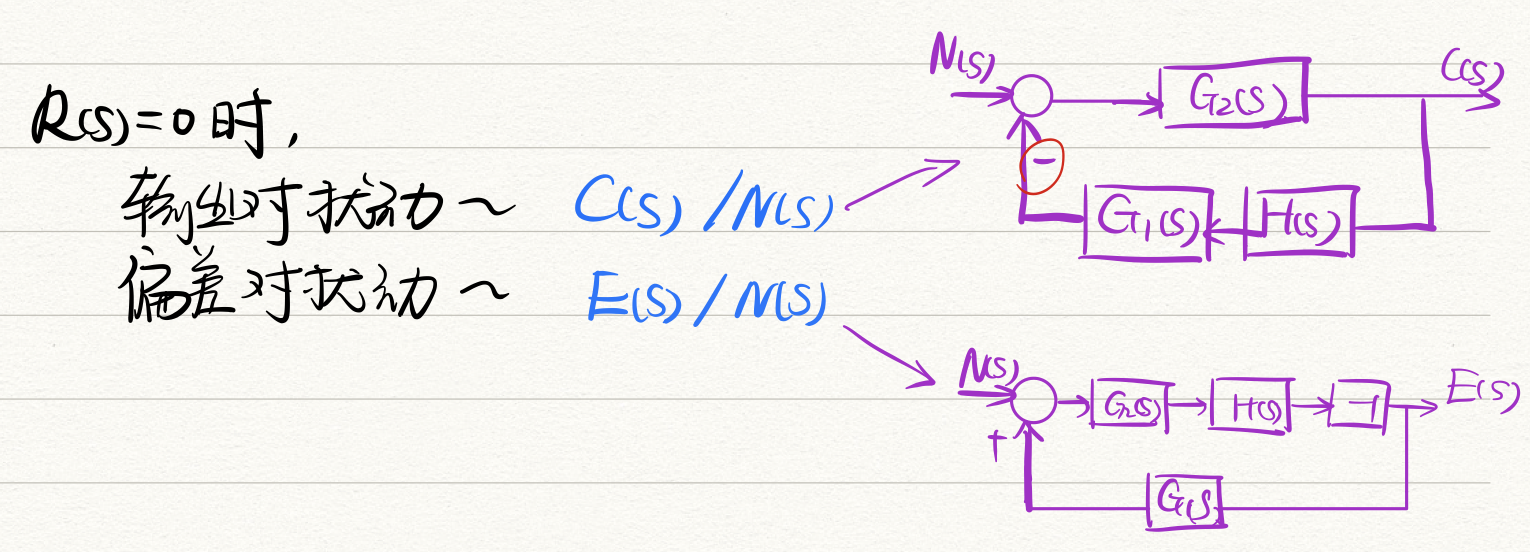 R(s)=0时,
输出对扰动~ C(s)/N(s)
偏差对扰动~ E(s)/N(s)
N(s) G2(s) C(s)
-
G1(s) H(s)
N(s) G2(s) H(s) -1 E(s)
+
G1(s)